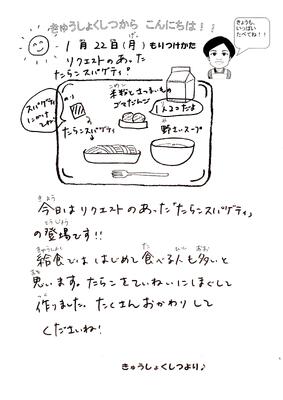 きゅうしょくしつから こんにちは!!
きょうも、
いっぱい
たべてね!!
1月22日(月) もりつけかた
リクエストのあった
たらこスパゲティ!
スパゲティ
にかけて
のり
米粉とさつまいもの
ゴマだんご
1人2コだよ
たらこスパゲティ
野さいスープ
今日はリクエストのあった「たらこスパゲティ」
の登場です!!
給食では はじめて食べる人も多いと
思います。たらこをていねいにほぐして
作りました。たくさんおかわりして
くださいね!
きゅうしょくしつより♪